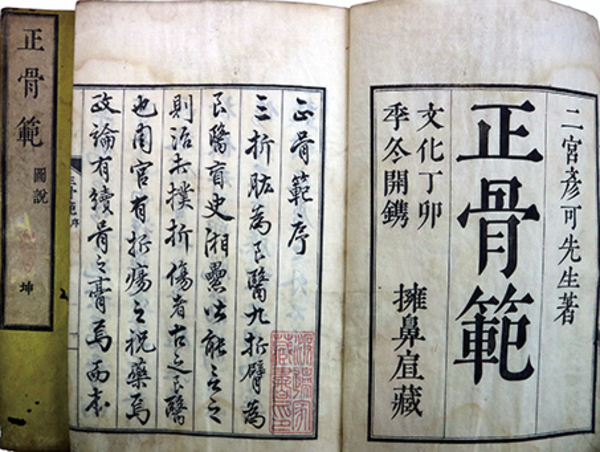 二宮彥可先生著
正骨範
文化丁卯
季冬開鐫
擁鼻亝藏
正骨範序
三折肱為良醫九折臂為
良醫盲史湘纍皆能言之
則治夫撲折傷者古之良醫
也周官有折瘍之祝藥焉
政論有續骨之膏焉而本
正骨範 序
正骨範 圖說
坤